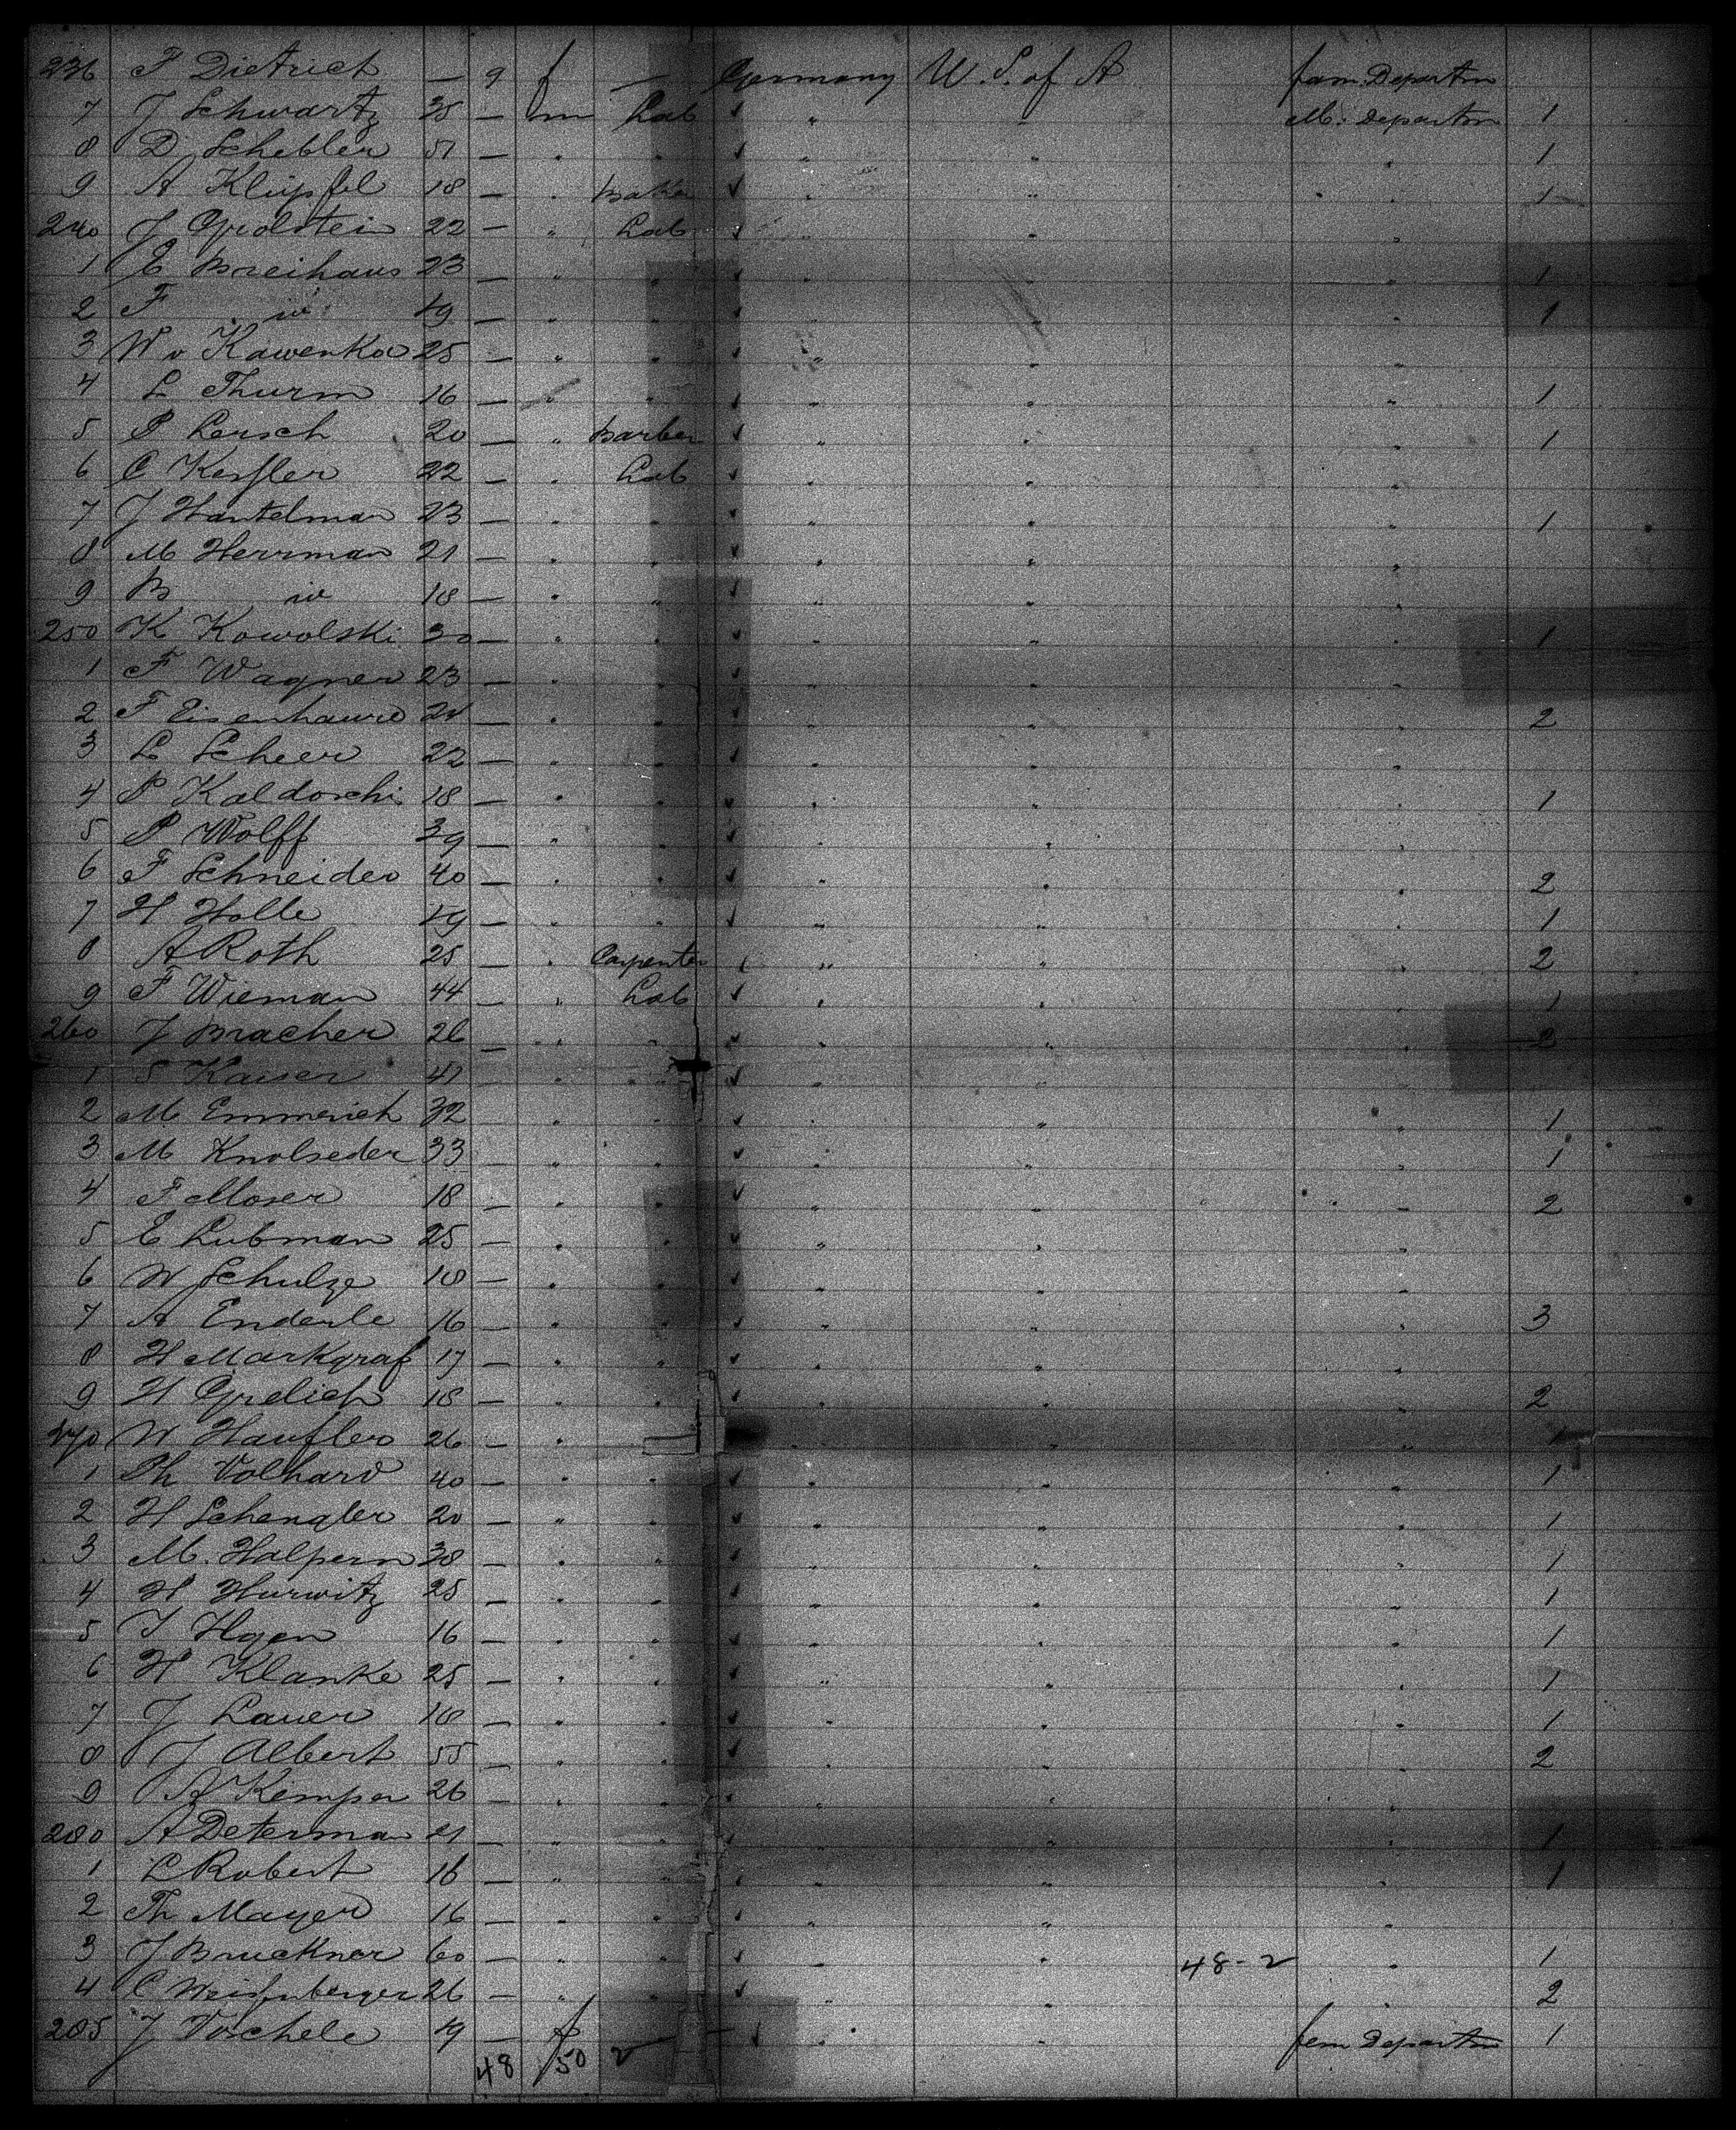 236 F Dietrich — 9 f — Germany U. S. of A fam. Departm
7 J Schwartz 35 — m Lab ✓ " " M. Departm 1
8 D Schebler 51 — " " ✓ " " " 1
9 A Klüpfel 18 — " Baker ✓ " " " 1
240 J Grolstein 22 — " Lab ✓ " " "
1 E Breihaus 23 — " " ✓ " " " 1
2 F " 19 — " " ✓ " " " 1
3 W v Kawenka 25 — " " ✓ " " "
4 L Thurm 16 — " " ✓ " " " 1
5 P Lersch 20 — " Barber ✓ " " " 1
6 C Kessler 22 — " Lab ✓ " " "
7 J Hantelman 23 — " " ✓ " " " 1
8 M Herrman 21 — " " ✓ " " "
9 B " 18 — " " ✓ " " "
250 K Kowolski 30 — " " ✓ " " " 1
1 F Wagner 23 — " " ✓ " " "
2 F Eisenhauer — " " ✓ " " " 2
3 L Scheer 22 — " " ✓ " " "
4 P Kaldoschi 18 — " " ✓ " " " 1
5 P Wolff 39 — " " ✓ " " "
6 F Schneider 40 — " " ✓ " " " 2
7 H Holle 19 — " " ✓ " " " 1
8 A Roth 25 — " Carpenter " " " 2
9 F Wieman 44 — " Lab ✓ " " " 1
260 J Bracher 26 — " " ✓ " " " 2
1 S Kaiser 41 — " " ✓ " " "
2 M Emmerich 32 — " " ✓ " " " 1
3 M Knolseder 33 — " " ✓ " " " 1
4 F Moser 18 — " " ✓ " " " 2
5 E Lubman 25 — " " ✓ " " "
6 W Schulze 18 — " " ✓ " " "
7 A Enderle 16 — " " ✓ " " " 3
8 H Markgraf 17 — " " ✓ " " "
9 H Grelich 18 — " " ✓ " " " 2
270 W Haufler 26 — " " " " 1
1 Ph Volhard 40 — " " ✓ " " " 1
2 H Schengler 20 — " " ✓ " " " 1
3 M. Halpern 38 — " " ✓ " " " 1
4 H Hurwitz 25 — " " ✓ " " " 1
5 J Hgen 16 — " " ✓ " " " 1
6 H Klanke 25 — " " ✓ " " " 1
7 J Lauer 18 — " " ✓ " " " 1
8 J Albert 55 — " " ✓ " " " 2
9 A Kemper 26 — " " ✓ " " "
280 A Determan 21 — " " ✓ " " " 1
1 L Robert 16 — " " ✓ " " " 1
2 Th Mayer 16 — " " ✓ " " "
3 J Bruckner 60 — " " ✓ " " 48-2 " 1
4 C Weisenberger 26 — " " ✓ " " " 2
285 J Voschele 19 — f — ✓ " " fem Departm 1
48 50 2